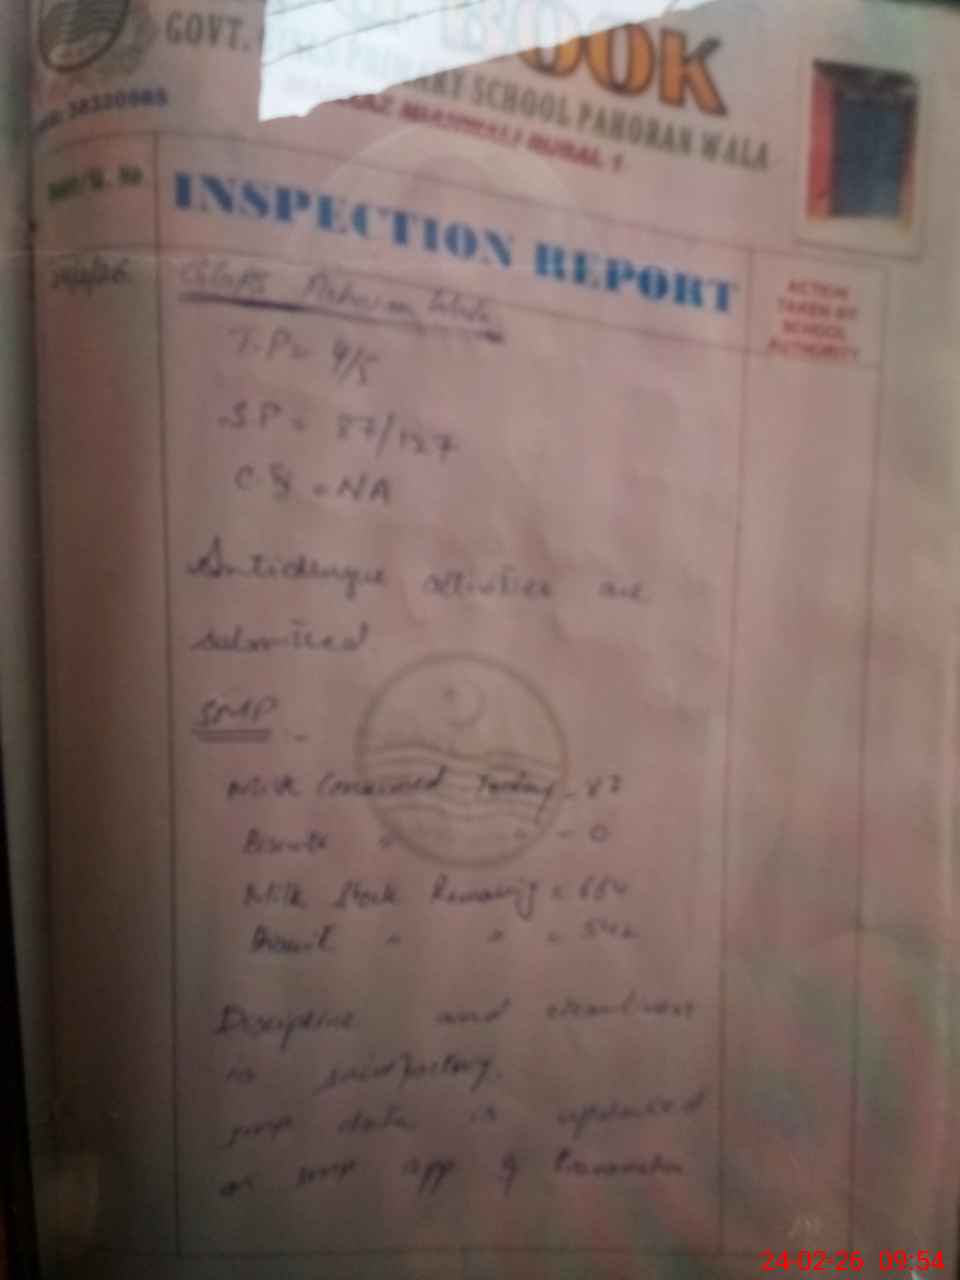 BOOK
GOVT. PRIMARY SCHOOL PAHORAN WALA
MARKAZ MIANWALI RURAL 1
INSPECTION REPORT
ACTION
TAKEN BY
SCHOOL
AUTHORITY
GGPS Pahoran Wala
T.P = 4/5
S.P = 87/127
C.S = NA
Antidengue activities are
submitted
SMP :-
Milk Consumed Today - 87
Biscuits " " - 0
Milk Stock Remaining =
Biscuit " " =
Discipline and cleanliness
is satisfactory.
smp data is updated
on smp app
24-02-26 09:54